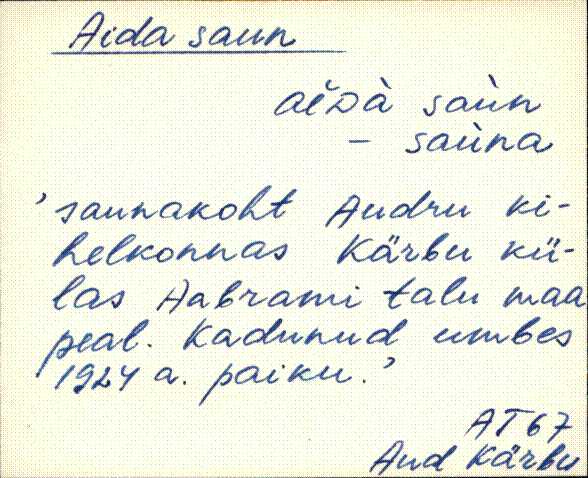 Aida saun
aĭDà saùn
– saùna
'saunakoht Audru ki-
helkonnas Kärbu kü-
las Aabrami talu maa
peal. Kadunud umbes
1924 a. paiku.'
AT 67
Aud Kärbu